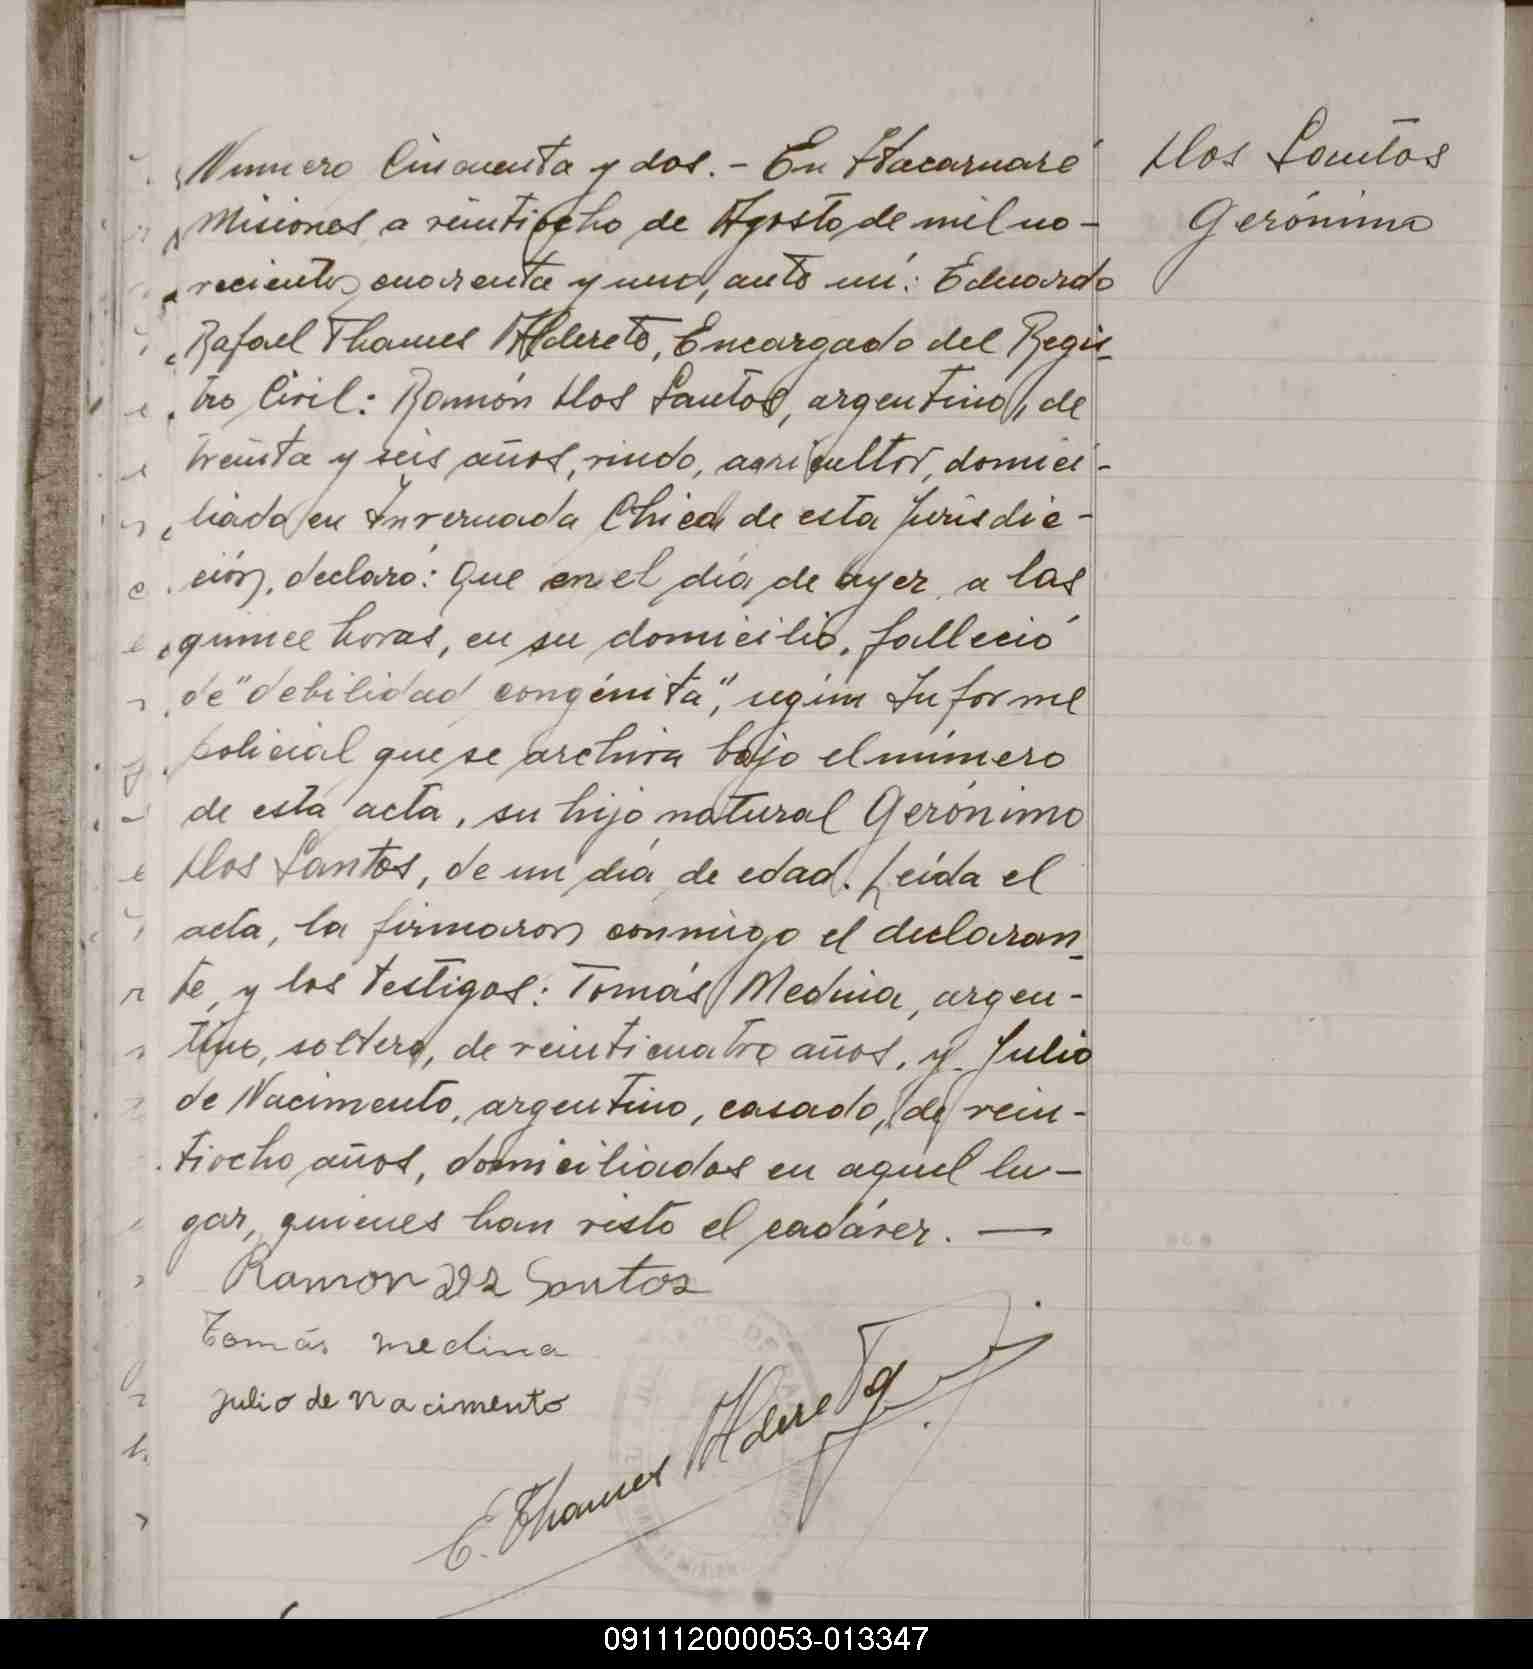 Numero Cincuenta y dos. - En Itacaruaré
Misiones a veintiocho de Agosto de mil no-
vecientos cuarenta y uno, ante mí: Eduardo
Rafael Thames Alderete, Encargado del Regis-
tro Civil: Ramón Dos Santos, argentino, de
treinta y seis años, viudo, agricultor, domici-
liado en Invernada Chica de esta Jurisdic-
ción, declaró: Que en el día de ayer a las
quince horas, en su domicilio, falleció
de "debilidad congénita", según Informe
policial que se archiva bajo el número
de esta acta, su hijo natural Gerónimo
Dos Santos, de un día de edad. Leída el
acta, la firmaron conmigo el declaran-
te, y los testigos: Tomás Medina, argen-
tino, soltero, de veinticuatro años, y Julio
de Nacimento, argentino, casado, de vein-
tiocho años, domiciliados en aquel lu-
gar, quienes han visto el cadáver. —
Dos Santos
Gerónimo
Ramon Dos Santos
Tomás medina
Julio de Nacimento
E. Thames Alderete
091112000053-013347